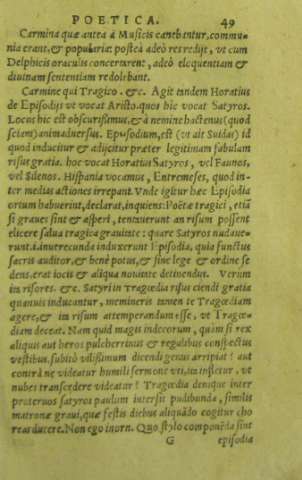 POETICA. 49
Carmina quæ antea á Musicis canebantur, commu-
nia erant, & popularia: postea adeò res redijt, ut cum
Delphicis oraculis concererent, adeò eloquentiam &
diuinam sententiam redolebant.
Carmine qui Tragico. &c. Agit tandem Horatius
de Episodijs ut vocat Aristo. quos hic vocat Satyros.
Locus hic est obscurissimus, & à nemine hactenus (quod
sciam) animaduersus. Episodium, est (vt ait Suidas) id
quod inducitur & adijcitur præter legitimam fabulam
risus gratia. hoc vocat Horatius Satyros, vel Faunos,
vel Silenos. Hispania vocamus, Entremeses, quod in-
ter medias actiones irrepant. Vnde igitur hæc Episodia
ortum habuerint, declarat, inquiens: Poëtæ tragici, etiã
si graues sint & asperi, tentauerunt an risum possent
elicere salua tragica grauitate: quare Satyros nudaue-
runt. i. nuerecunda induxerunt Episodia, quia functus
sacris auditor, & bene potus, & sine lege & ordine se
dens, erat iocis & aliqua nouitate detinendus. Verum
im risores. &c. Satyri in Tragœdia risus ciendi gratia
quamuis inducantur, memineris tamen te Tragœdiam
agere, & im risum attemperandum esse, vt Tragœ-
diam deceat. Nam quid magis indecorum, quàm si rex
aliquis aut heros pulcherrimis & regalibus conspectus
vestibus, subitò vilissimum dicendi genus arripiat? aut
contrà ne videatur humili sermone vti, im infletur, vt
nubes transcedere videatur? Tragœdia denique inter
proteruos satyros paulum intersit pudibunda, similis
matronæ graui, quæ festis diebus aliquãdo cogitur cho
reas ducere. Non ego inorn. Quo stylo componẽda sint
G episodia